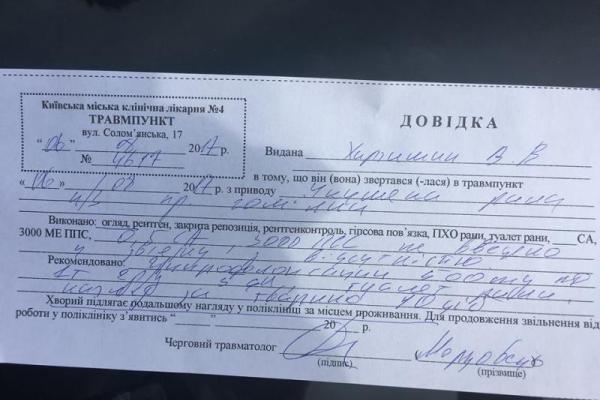 Київська міська клінічна лікарня №4
ТРАВМПУНКТ
вул. Солом'янська, 17
"06" 08 2017 р.
№ 4617
ДОВІДКА
Видана В. В
в тому, що він (вона) звертався (-лася) в травмпункт
"06" 08 2017 р. з приводу рана
н/з пр гомілки
Виконано: огляд, рентген, закрита репозиція, рентгенконтроль, гіпсова пов'язка, ПХО рани, туалет рани, ____ СА,
3000 МЕ ППС, СА 3000 ППС не введено
у зв'язку з відсутністю
Рекомендовано: по
1т 3 туалет рани,
нагляд за твариною 10 днів
Хворий підлягає подальшому нагляду у поліклініці за місцем проживання. Для продовження звільнення від
роботи у поліклініку з'явитись "______" ____________ 20___ р.
Черговий травматолог
(підпис) (прізвище)